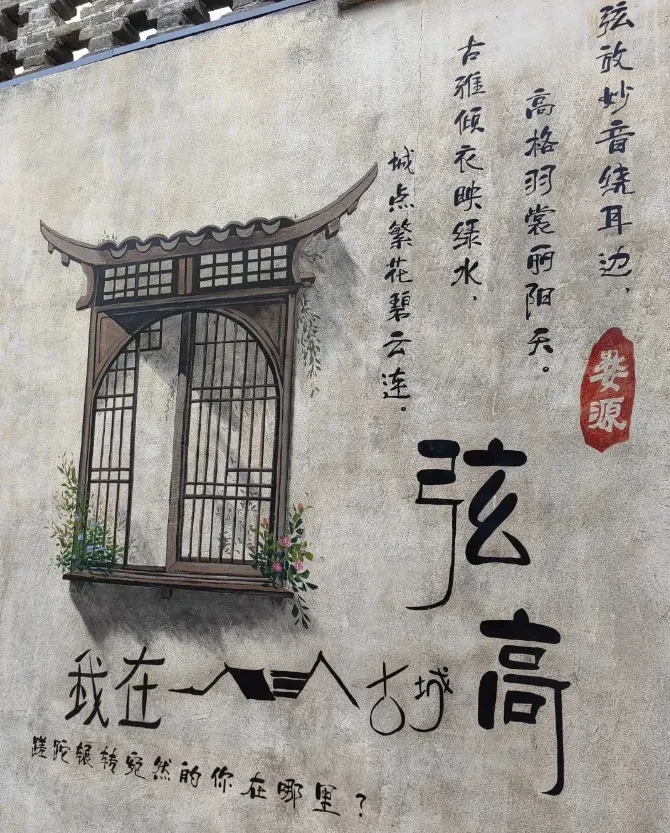 弦放妙音绕耳边,
高格羽裳丽阳天。
古雅倾衣映绿水,
城点繁花碧云连。
婺源
弦高
我在 古城
蹉跎辗转宛然的你在哪里?